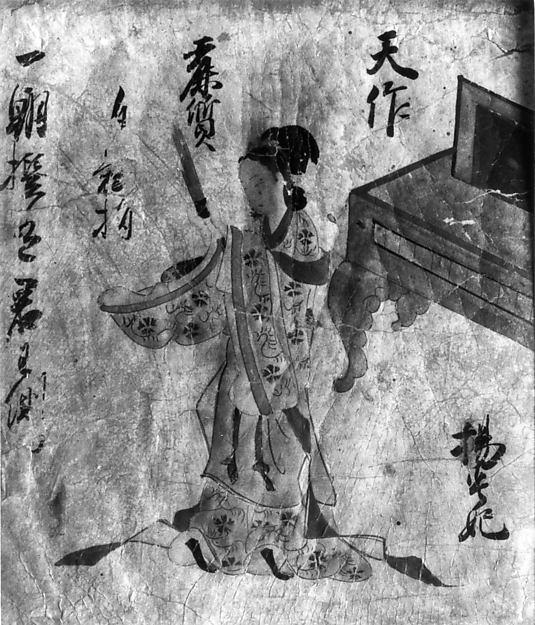 天作
麗質
自
一朝撰在君王側
楊貴妃